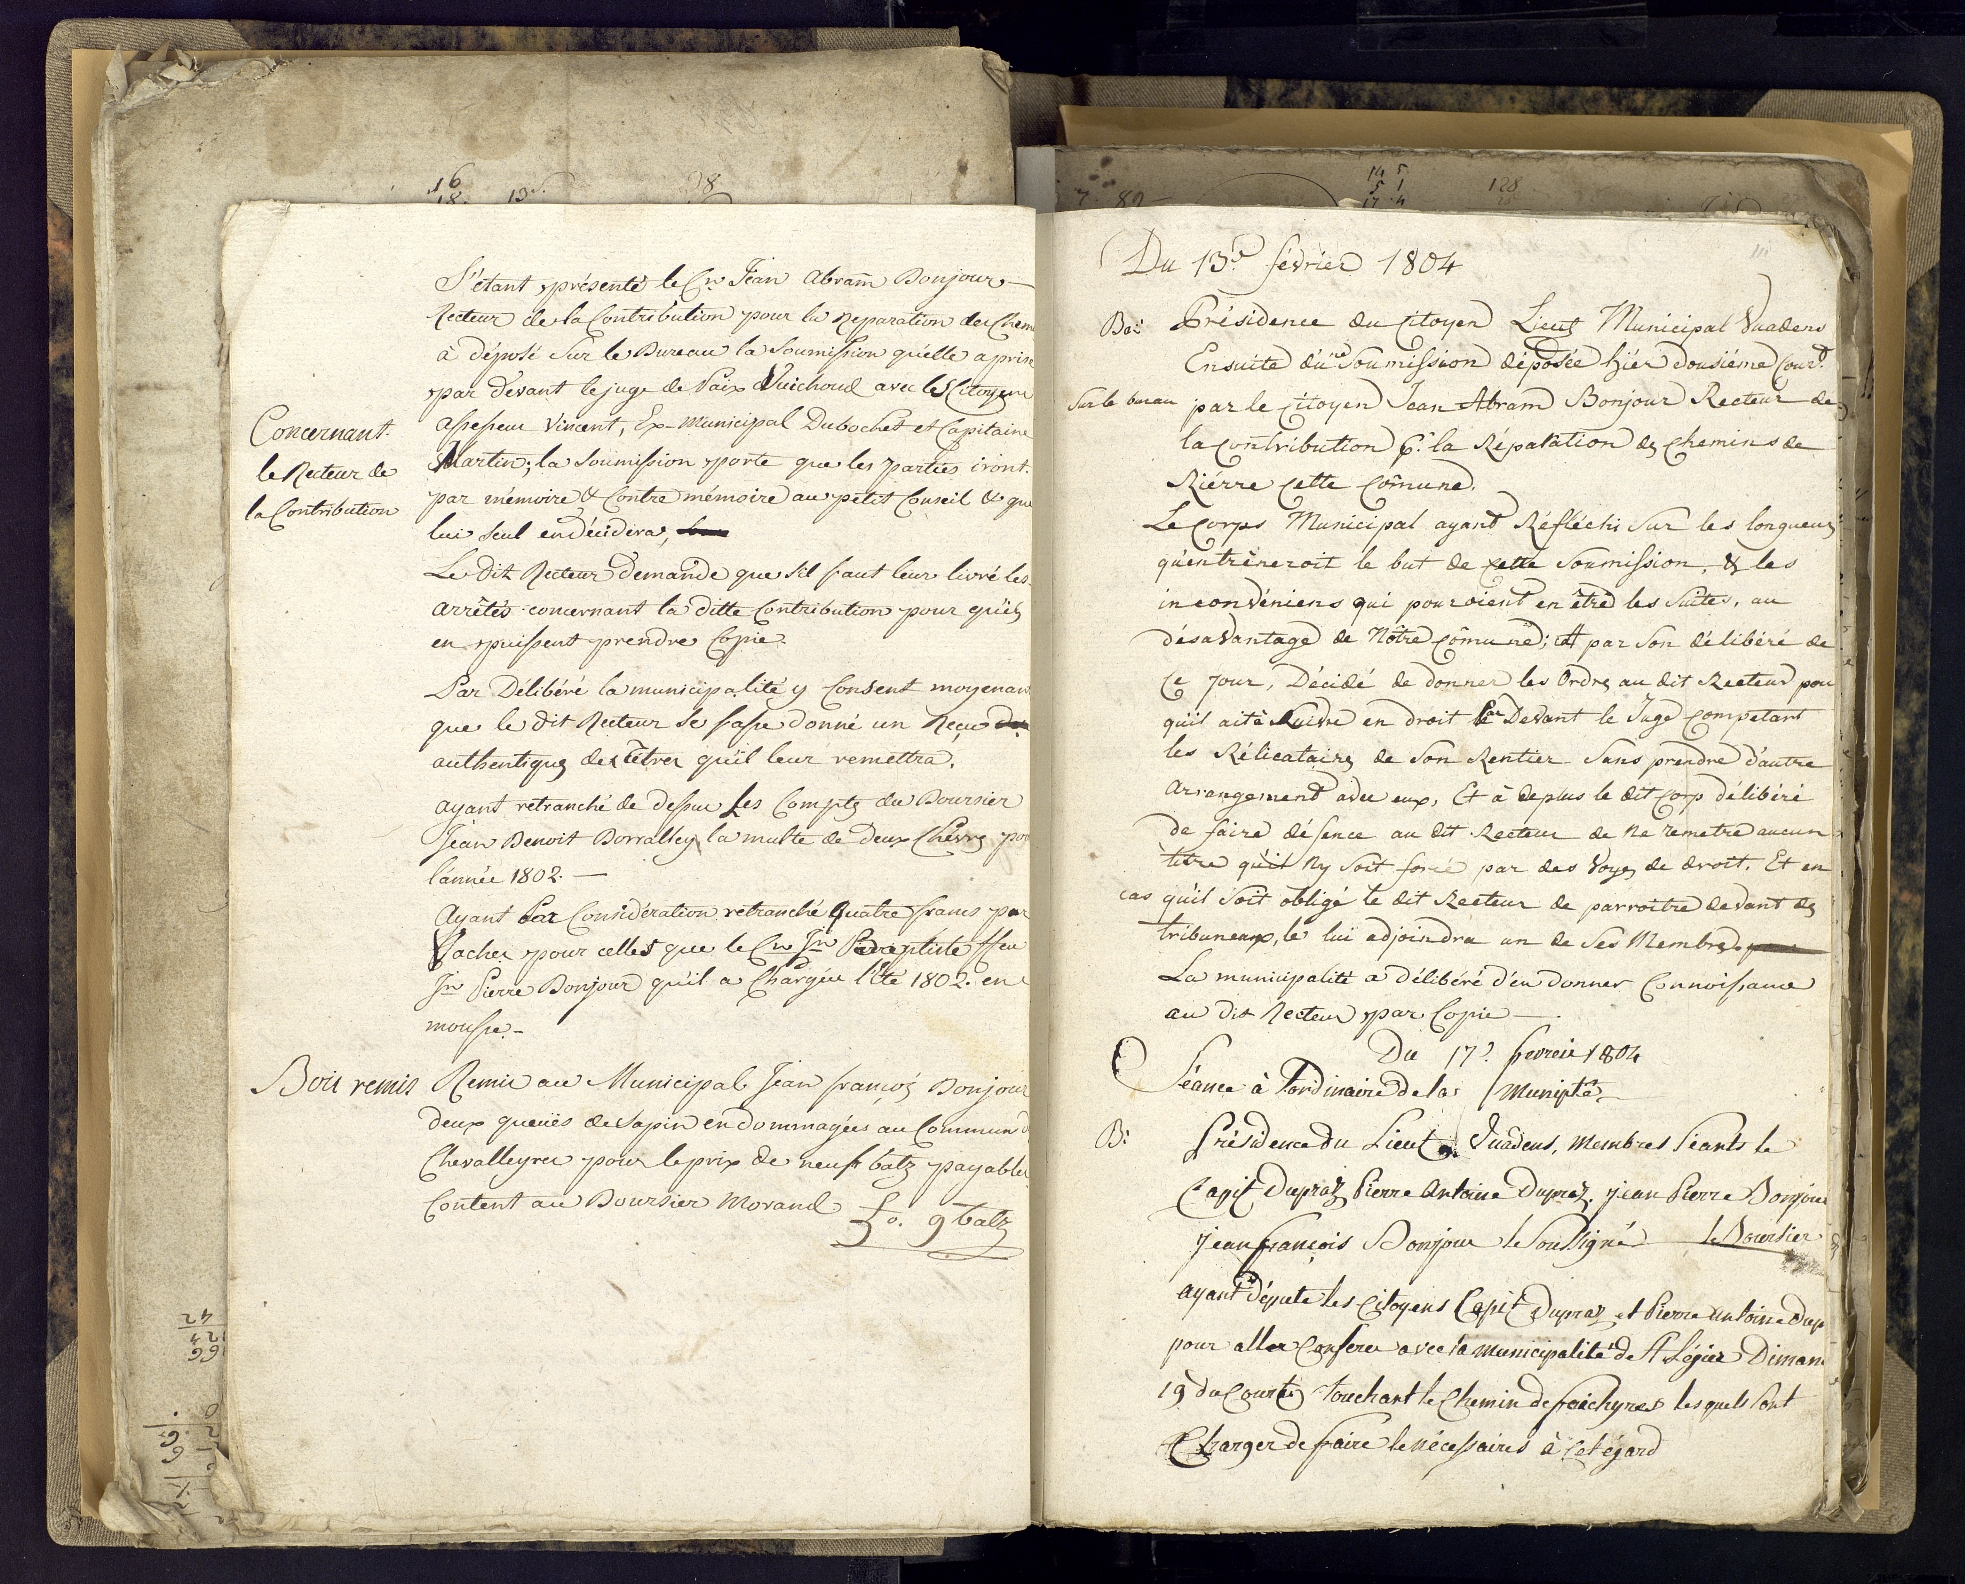 S'étant présenté le Cn. Jean Abram Bonjour
Recteur de la Contribution pour la Reparation des Chem
à déposé Sur le Bureau la Soumission qu'elle a prise
par devant le juge de Paix Vuichoud avec les Citoyens
Concernant
le Recteur de
la Contribution
assesseur Vincent, Ex-Municipal Dubochet et Capitaine
Martin; la Soumission porte que les parties iront
par mémoire & Contre mémoire au petit Conseil & que
lui seul en décidera,
Le dit Recteur demande que s'il faut leur livré les
arrêtés concernant la ditte Contribution pour qu'ils
en puissent prendre Copie.
Par Délibéré la municipalité y Consent moyenan
que le dit Recteur se fasse donné un Reçu
authentique des têtres qu'il leur remettra.
ayant retranché de dessus les Compts du Boursier
Jean Benoit Borralley la multe de deux Chevres po
l'année 1802. —
Ayant Par Considération retranché quatre francs par
Vaches pour celles que le Cn Jn Batptiste ffeu
Jn Pierre Bonjour qu'il a Chargée l'été 1802. en
mousse -
Bois remis
Remis au Municipal Jean françois Bonjour
deux queües de sapin endommagées au Commun d
Chevalleyres pour le prix de neuf batz payables
Content au Boursier Morand
L 0. 9 batz
Du 13e. février 1804
Présidence du Citoyen Lieut Municipal Vuadens
Ensuite d'úne Soumission déposée hiér dousiéme Cour.t
Sur le bureau
par le Citoyen Jean Abram Bonjour Recteur de
la Contribution pr. la Réparation des chemins de
Rierre cette Comune.
Le Corps Municipal ayant Réfléchi Sur les longueurs
qu'entrêneroit le but de cette Soumission, & les
inconvéniens qui pouroient en être les Suites, au
désavantage de Nôtre Comune; et par Son délibéré de
Ce Jour, Décidé de donner les Ordres au dit Recteur pou
qu'il aité Suivre en droit Par Devant le Juge Competant
les Rélicataires de Son Rentier Sans prendre d'autre
Arrangement avec eux, Et à deplus le dit Corp délibéré
de faire défence au dit Recteur de ne remetre aucun
titre qu'il Ny Soit forcé par des Voyes de droit. Et en
cas qu'il Soit obligé le dit Recteur de parroitre devant des
tribuneaux, le lui adjoindra un de Ses Membres
La municipalité a délibéré d'en donner Connoissance
au dit Recteur par Copie —
Du 17e. fevrier 1804
Séance à l'ordinaire de la Munipté
Présidence du Lieut Vuadens, Membres Séants le
Capit Dupraz Pierre Antoine Dupraz. Jean Pierre Bonjour
Jean François Bonjour le Soussigné le Boursier
ayant député les Citoyens Capit Dupraz et Pierre Antoine Dup
pour aller Conferer avec la municipalité de St Légier Diman
19 du Court touchant le Chemin de les quels Sont
Charger de faire le nécessaires à Cet égard